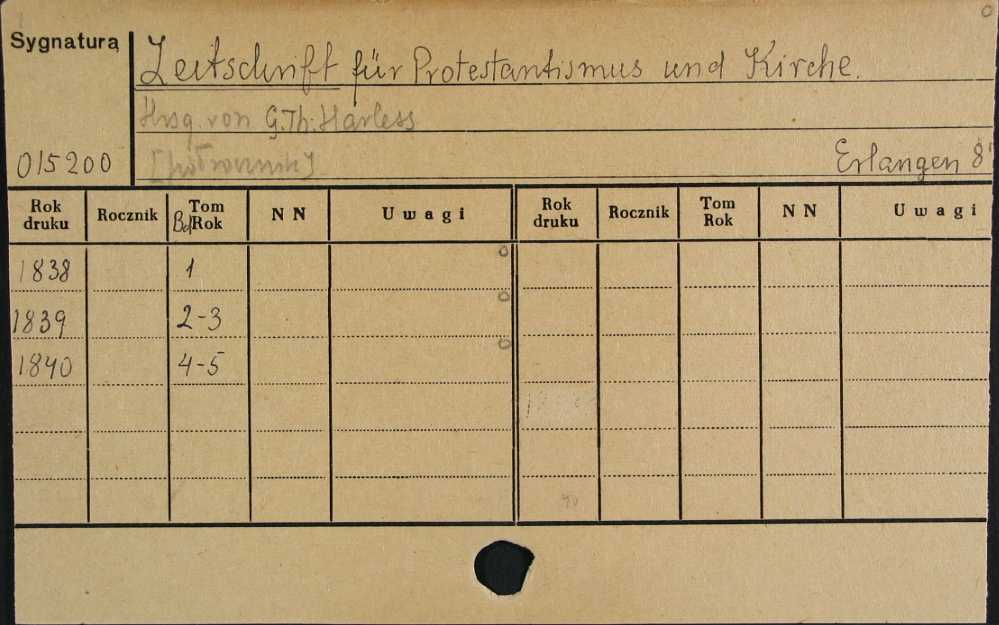 Sygnatura
Zeitschrift für Protestantismus und Kirche.
Hrsg. von G. Th. Harless
015200 Erlangen 8°
Rok druku Rocznik Bd/Tom Rok N N Uwagi Rok druku Rocznik Tom Rok N N Uwagi
1838 1
1839 2-3
1840 4-5